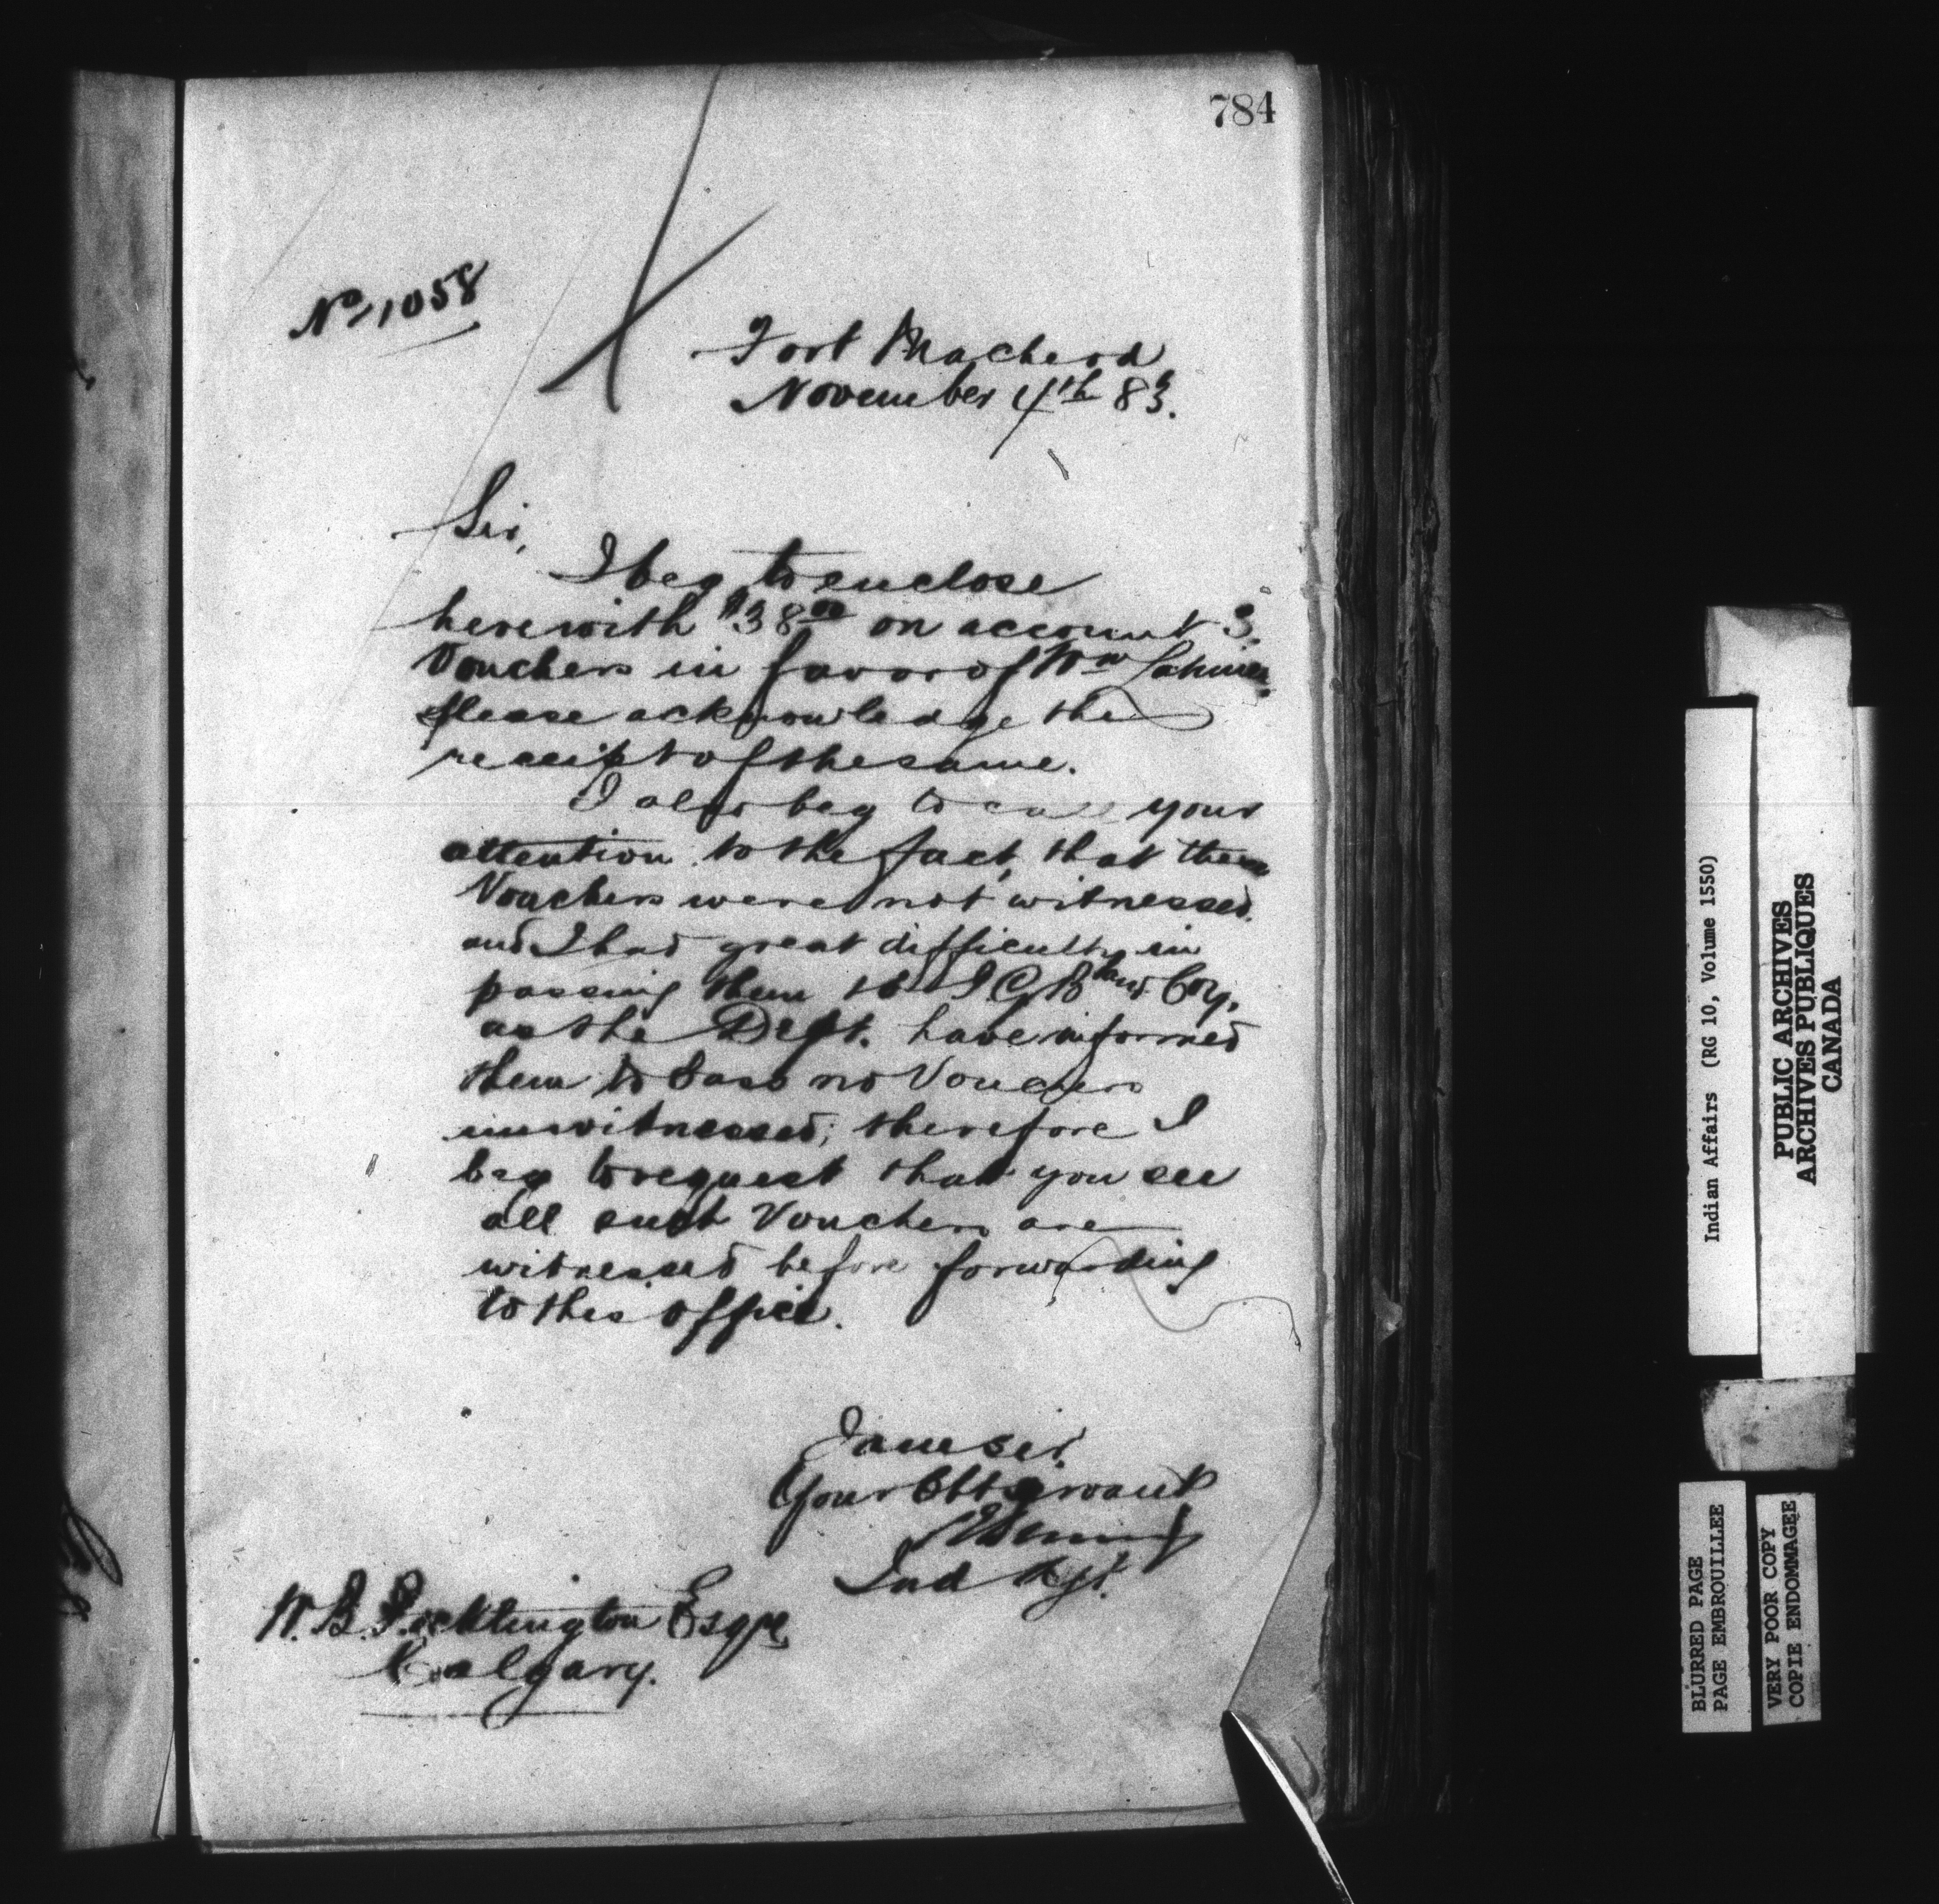 784
No 1058
Fort Macleod
November 4th 83.
Sir,
I beg to enclose
herewith $38 00 on account 3
Vouchers in favor of Wm
please acknowledge the
receipt of the same.
I also beg to call your
attention to the fact, that these
Vouchers were not witnessed
and I had great difficulty in
passing them to I G B Coy,
as the Dept. have informed
them to pass no Vouchers
unwitnessed; therefore I
beg to request that you see
all such Vouchers are
witnessed before forwarding
to this office.
I am sir,
Your Obt Servant
Ind Agt.
W. B. Pocklington Esqre
Calgary.
Indian Affairs (RG 10, Volume 1550)
PUBLIC ARCHIVES
ARCHIVES PUBLIQUES
CANADA
BLURRED PAGE
PAGE EMBROUILLEE
VERY POOR COPY
COPIE ENDOMMAGEE